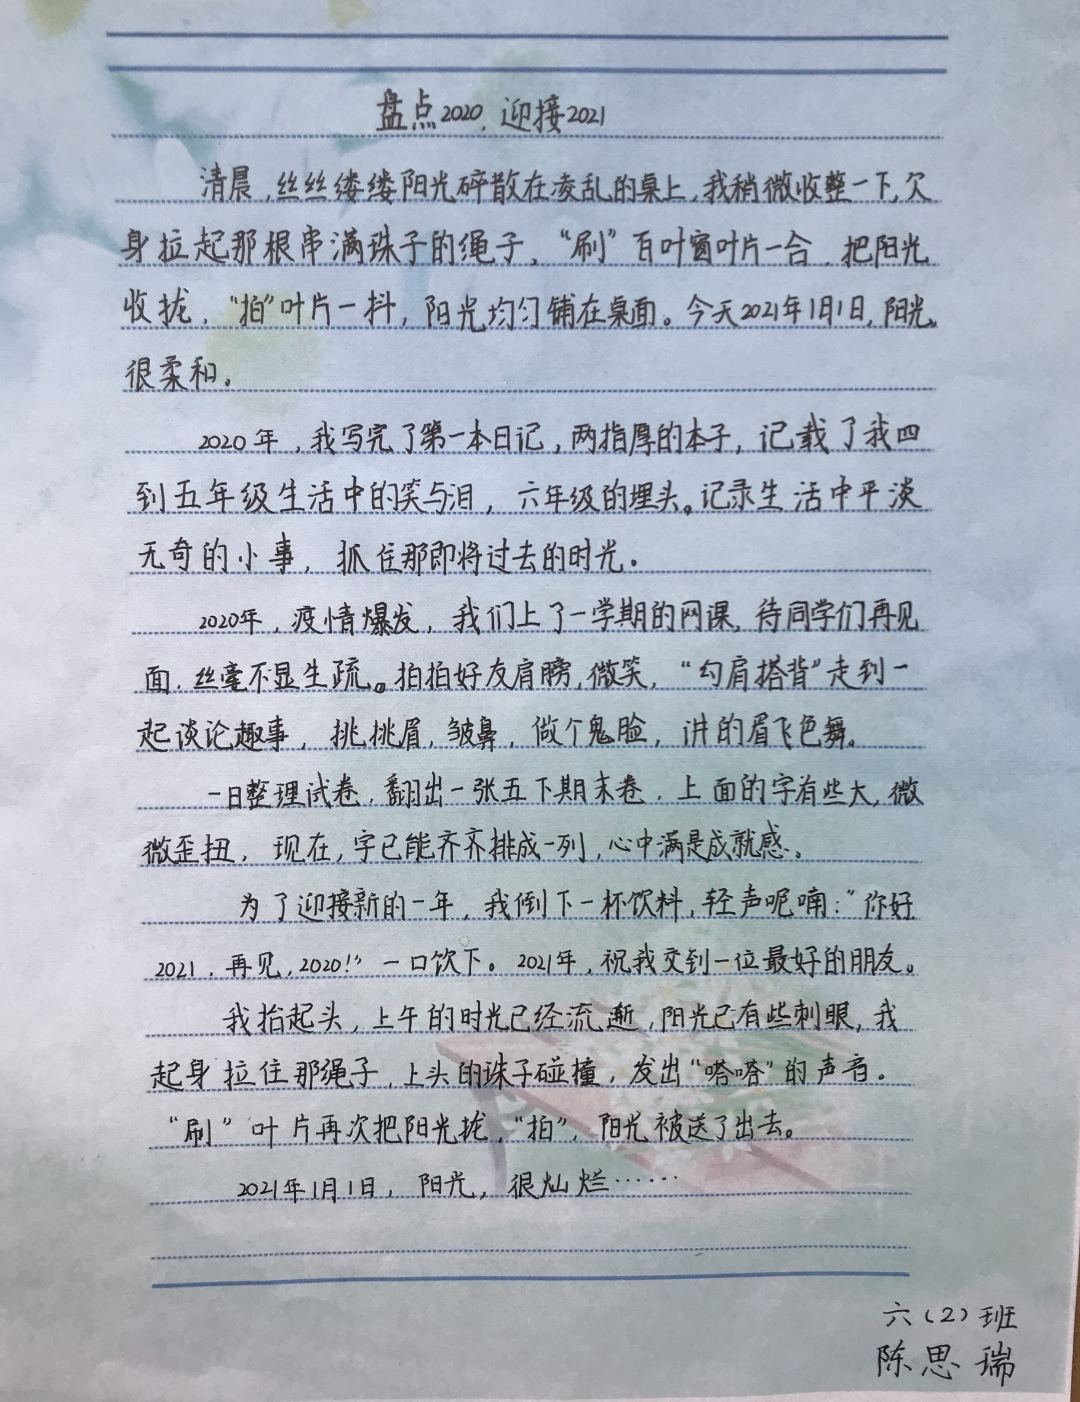 盘点2020，迎接2021
清晨，丝丝缕缕阳光碎散在凌乱的桌上，我稍微收整一下，欠
身拉起那根串满珠子的绳子，“刷”百叶窗叶片一合，把阳光
收拢，“拍”叶片一抖，阳光均匀铺在桌面。今天2021年1月1日，阳光，
很柔和。
2020年，我写完了第一本日记，两指厚的本子，记载了我四
到五年级生活中的笑与泪，六年级的埋头。记录生活中平淡
无奇的小事，抓住那即将过去的时光。
2020年，疫情爆发，我们上了一学期的网课，待同学们再见
面，丝毫不显生疏。拍拍好友肩膀，微笑，“勾肩搭背”走到一
起谈论趣事，挑挑眉，皱鼻，做个鬼脸，讲的眉飞色舞。
一日整理试卷，翻出一张五下期末卷，上面的字有些大，微
微歪扭，现在，字已能齐齐排成一列，心中满是成就感。
为了迎接新的一年，我倒下一杯饮料，轻声呢喃：“你好
2021，再见，2020！”一口饮下。2021年，祝我交到一位最好的朋友。
我抬起头，上午的时光已经流逝，阳光已有些刺眼，我
起身拉住那绳子，上头的珠子碰撞，发出“嗒嗒”的声音。
“刷”叶片再次把阳光拢，“拍”，阳光被送了出去。
2021年1月1日，阳光，很灿烂……
六（2）班
陈思瑞